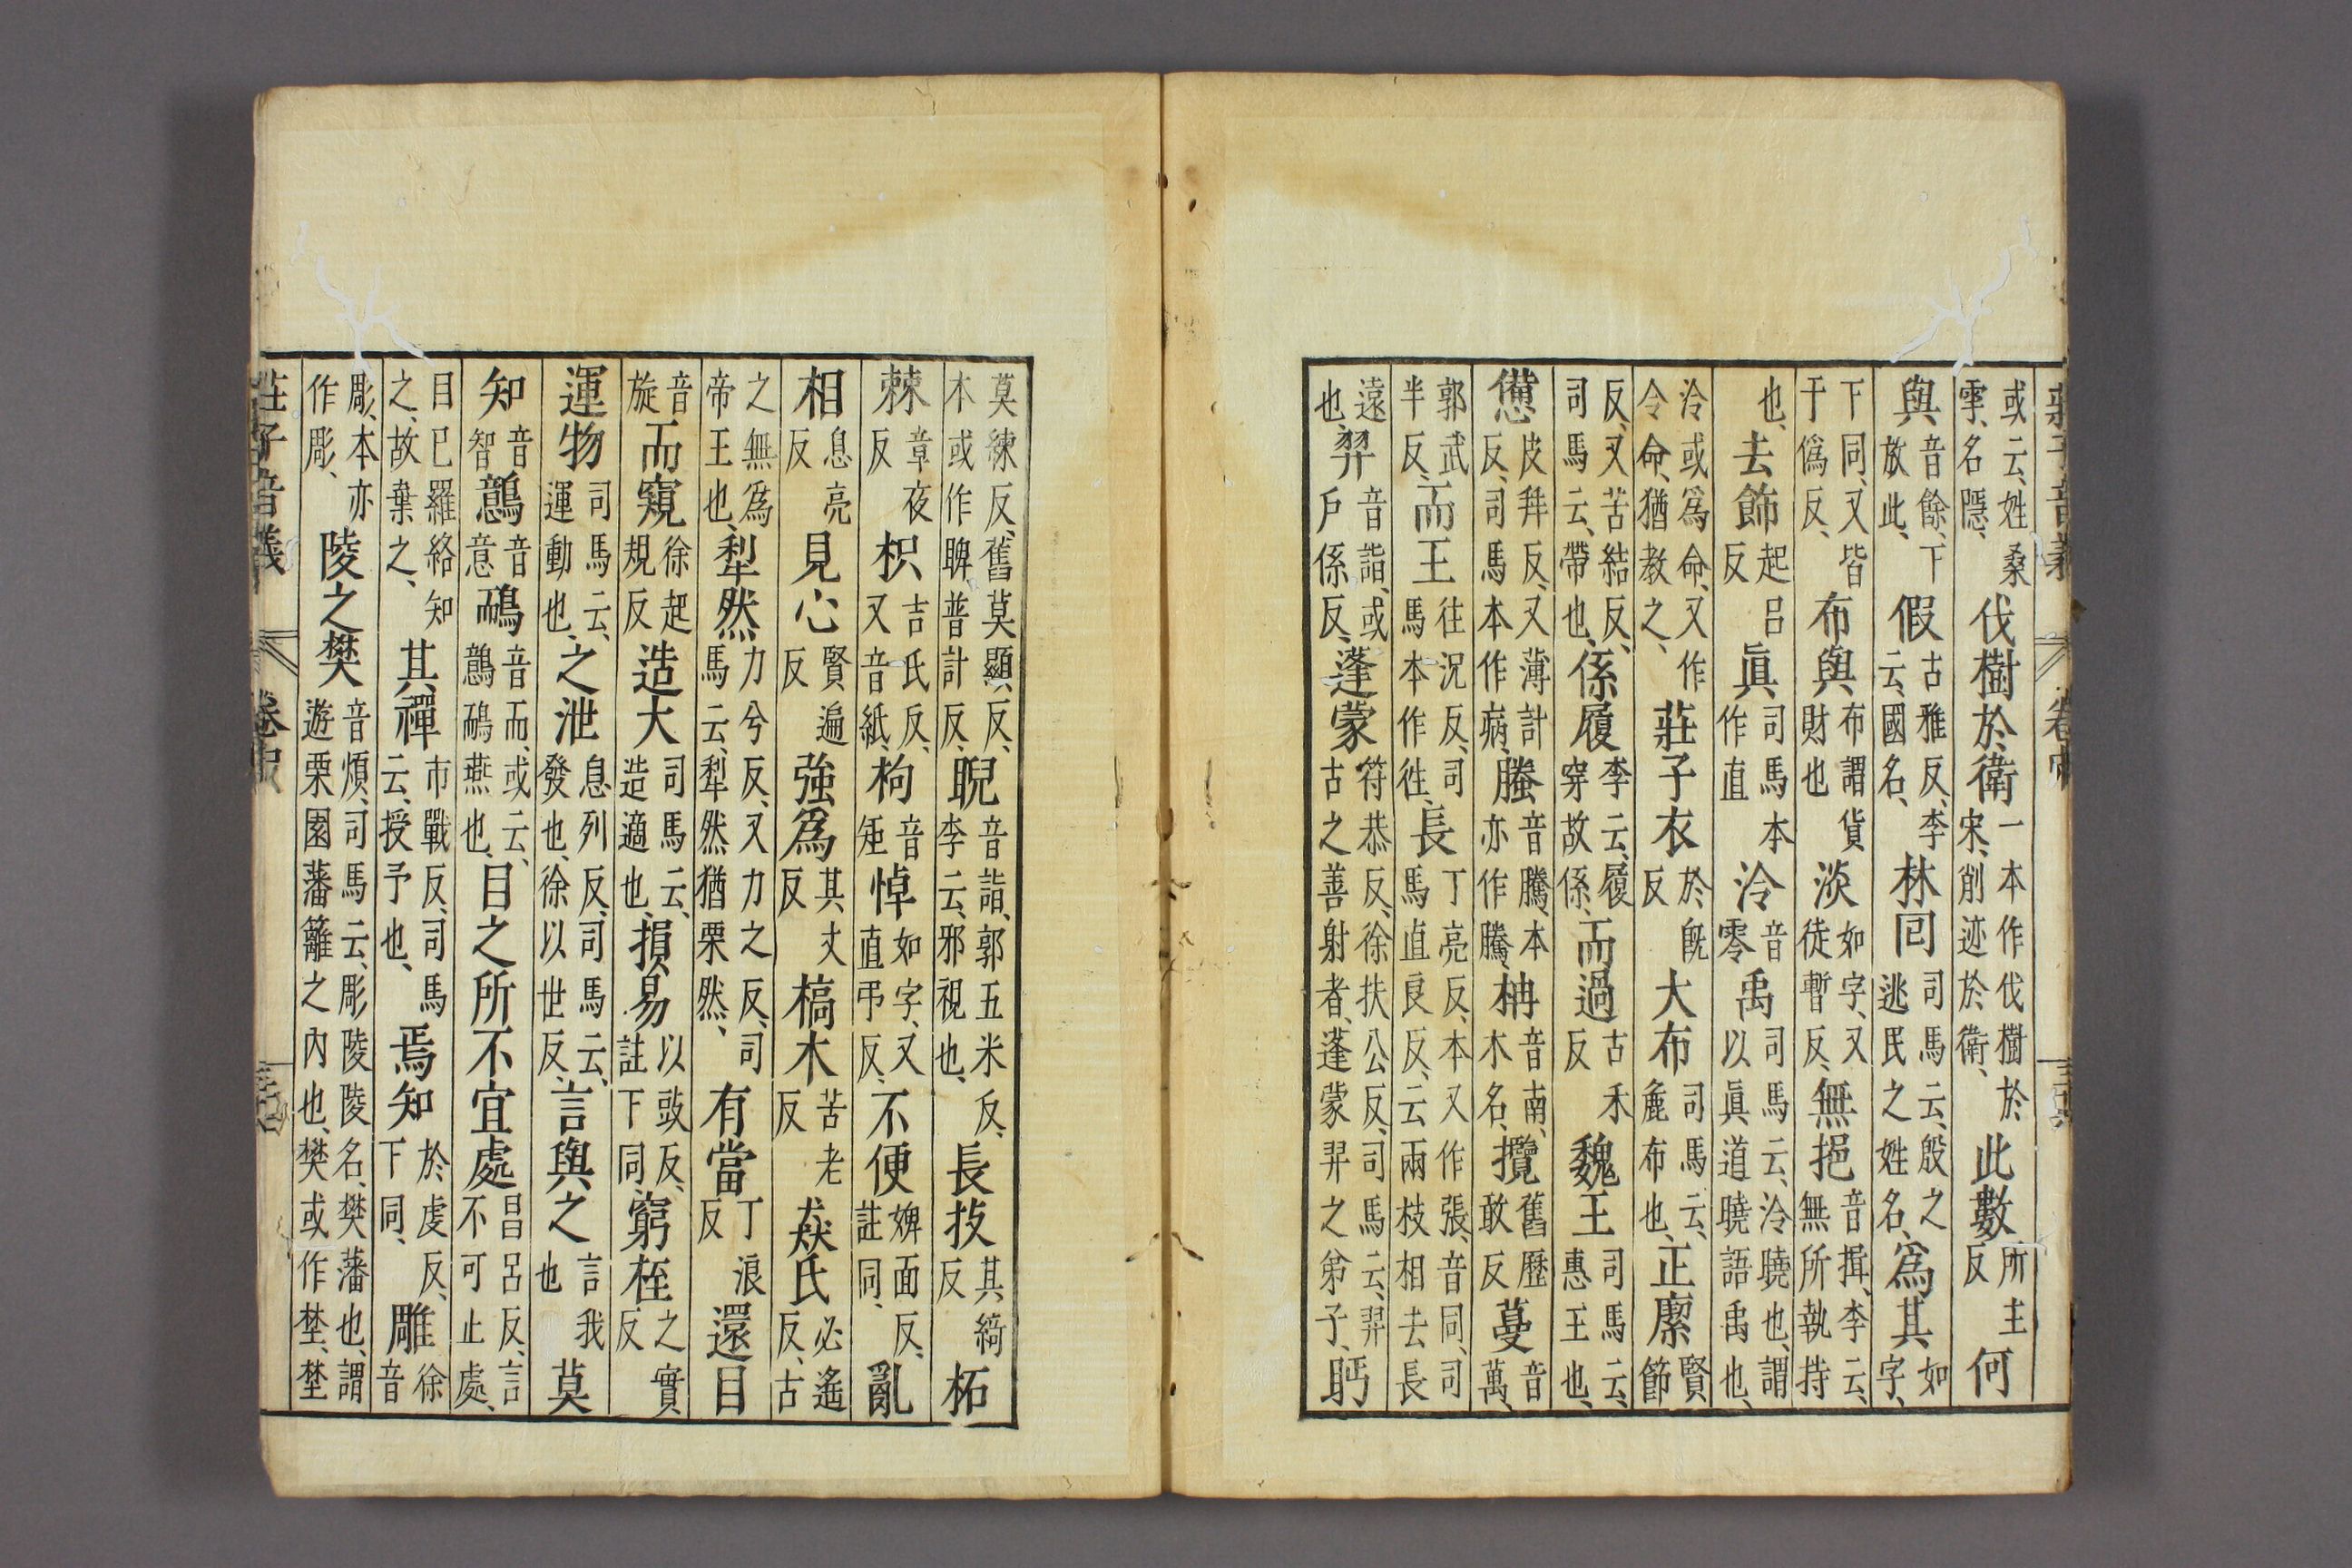 莊子音義 卷中
或云、姓桑雽、名隱、伐樹於衛一本作伐樹於宋、削迹於衛、此數所主反何
與音餘、下放此、假古雅反、李云、國名、林回司馬云、殷之逃民之姓名、爲其如字、
下同、又皆于僞反、布與布謂貨財也淡如字、又徒暫反、無挹音揖、李云、無所執持
也、去飾起呂反眞司馬本作直泠音零禹司馬云、泠曉也、謂以眞道曉語禹也、
泠或爲命、又作令命、猶教之、莊子衣於旣反大布司馬云、麄布也、正緳賢節
反、又苦結反、司馬云、帶也、係履李云、履穿故係、而過古禾反魏王司馬云、惠王也、
憊皮拜反、又薄計反、司馬本作病、螣音騰、本亦作騰、柟音南、木名、攬舊歷敢反蔓音萬、
郭武半反、而王往況反、司馬本作往、長丁亮反、本又作張、音同、司馬直良反、云兩枝相去長
遠也、羿音詣、或戶係反、蓬蒙符恭反、徐扶公反、司馬云、羿古之善射者、蓬蒙羿之弟子、眄
莫練反、舊莫顯反、本或作睥、普計反、睨音詣、郭五米反、李云、邪視也、長技其綺反柘
棘章夜反枳吉氏反、又音紙、枸音矩悼如字、又直弔反、不便婢面反、註同、亂
相息亮反見心賢遍反強爲其丈反槁木苦老反猋氏必遙反、古
之無爲帝王也、犁然力兮反、又力之反、司馬云、犁然猶栗然、有當丁浪反還目
音旋而窺徐起規反造大司馬云、造適也、損易以豉反、註下同、窮桎之實反
運物司馬云、運動也、之泄息列反、司馬云、發也、徐以世反、言與之言我也莫
知音智鷾音意鴯音而、或云、鷾鴯燕也、目之所不宜處昌呂反、言不可止處、
目已羅絡知之、故棄之、其禪市戰反、司馬云、授予也、焉知於虔反、下同、雕徐音
彫、本亦作彫、陵之樊音煩、司馬云、彫陵陵名、樊藩也、謂遊栗園藩籬之內也、樊或作埜、埜
莊子音義 卷中